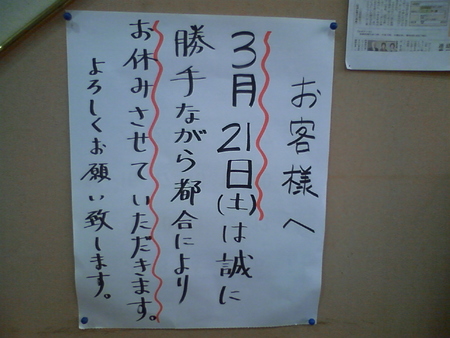 お客様へ
3月21日(土)は誠に
勝手ながら都合により
お休みさせていただきます。
よろしくお願い致します。